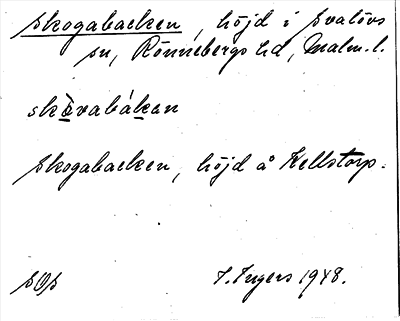 Skogabacken, höjd i Svalövs
sn, Rönnebergs hd, Malm. l.
skò̤vabákan
Skogabacken, höjd å Kellstorp.
SOS I. Ingers 1948.